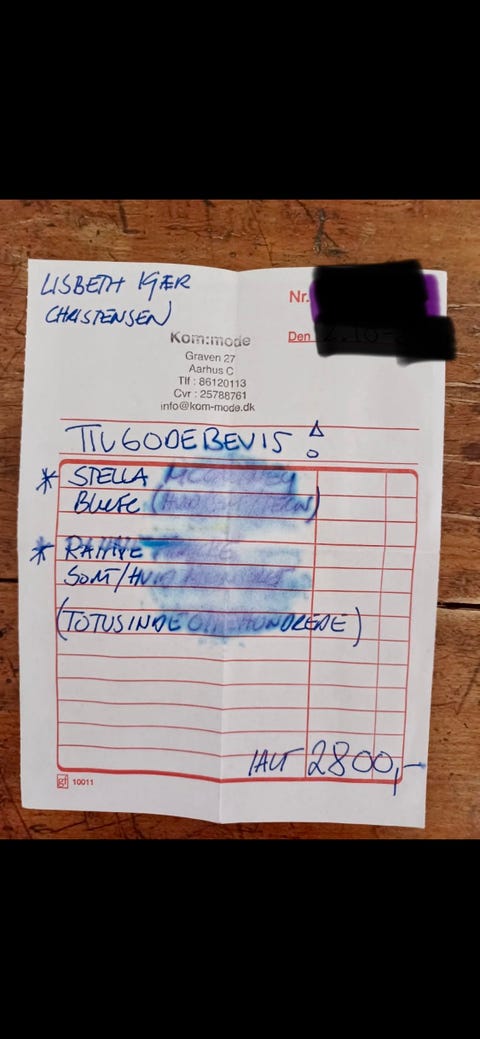 LISBETH KJÆR
CHRISTENSEN
Nr.
Den
Kom:mode
Graven 27
Aarhus C
Tlf : 86120113
Cvr : 25788761
info@kom-mode.dk
TILGODEBEVIS
* STELLA MCCARTNEY
*
SORT/HVID
(TOTUSINDE OTTEHUNDREDE)
IALT 2800,-
gf 10011